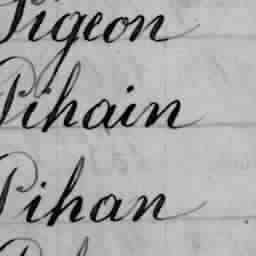 Pigeon
Pihain
Pihan